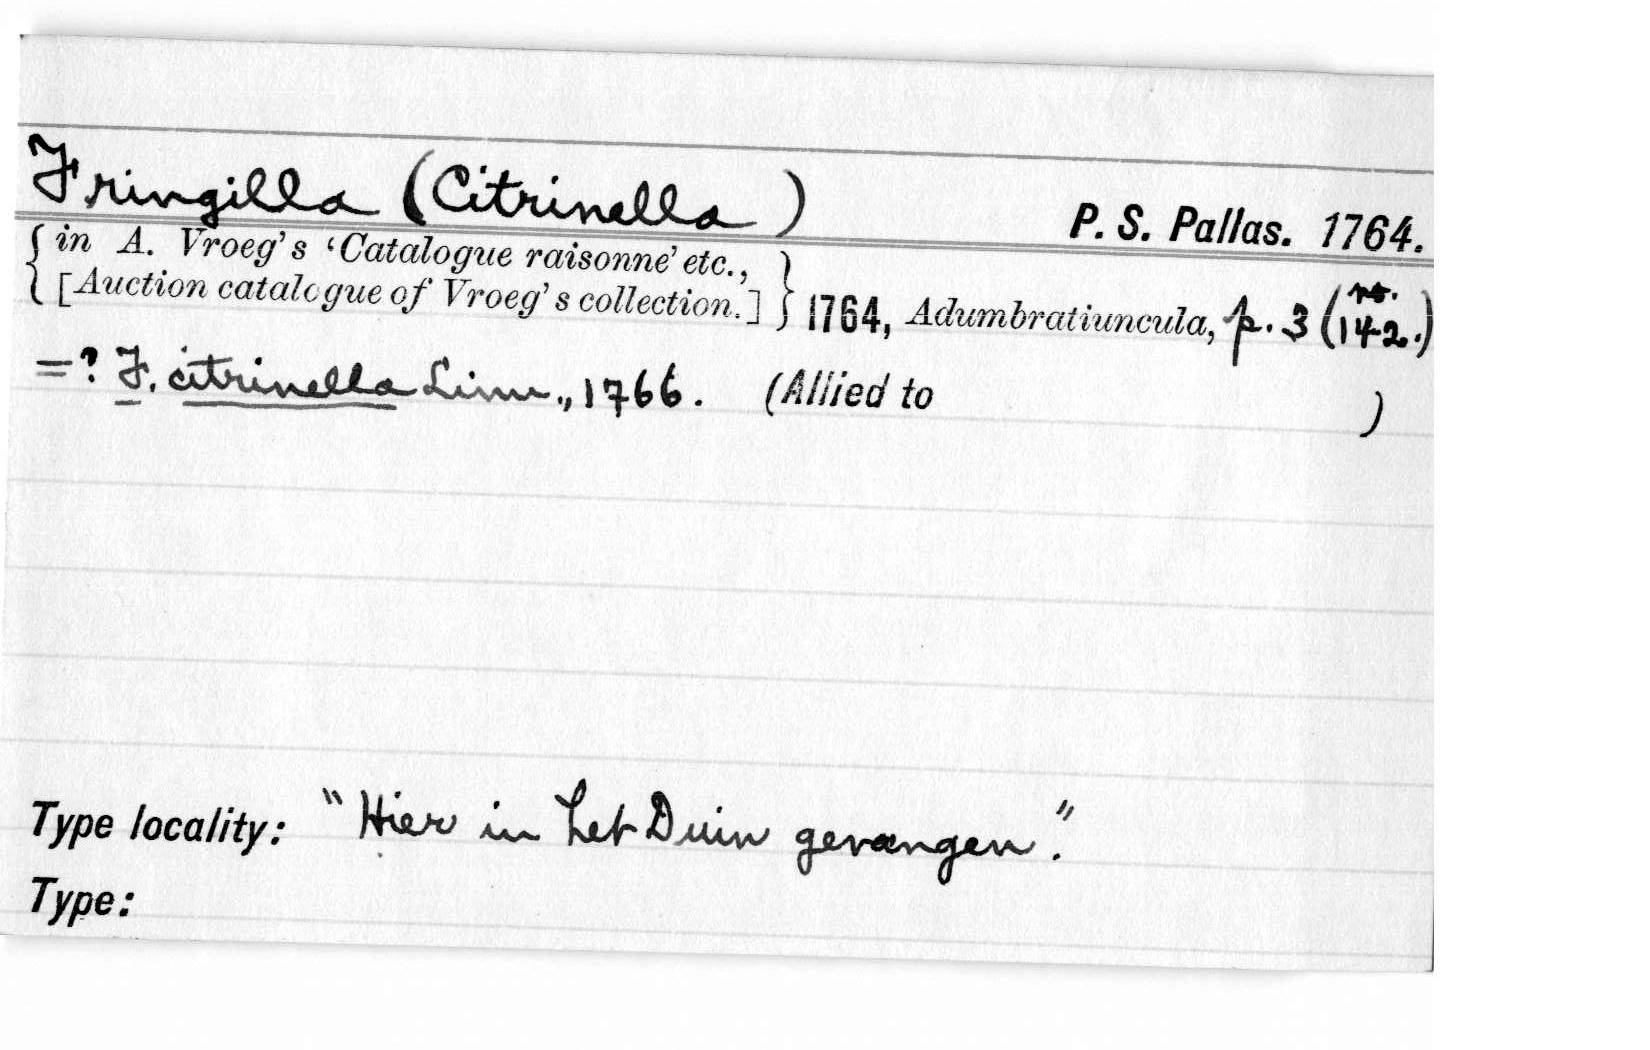 Fringilla (Citrinella) P. S. Pallas. 1764.
{in A. Vroeg's 'Catalogue raisonne' etc.,
[Auction catalogue of Vroeg's collection.]} 1764, Adumbratiuncula, p. 3 (no. 142.)
=? F. citrinella Linn., 1766. (Allied to )
Type locality: "Hier in het Duin gevangen."
Type: